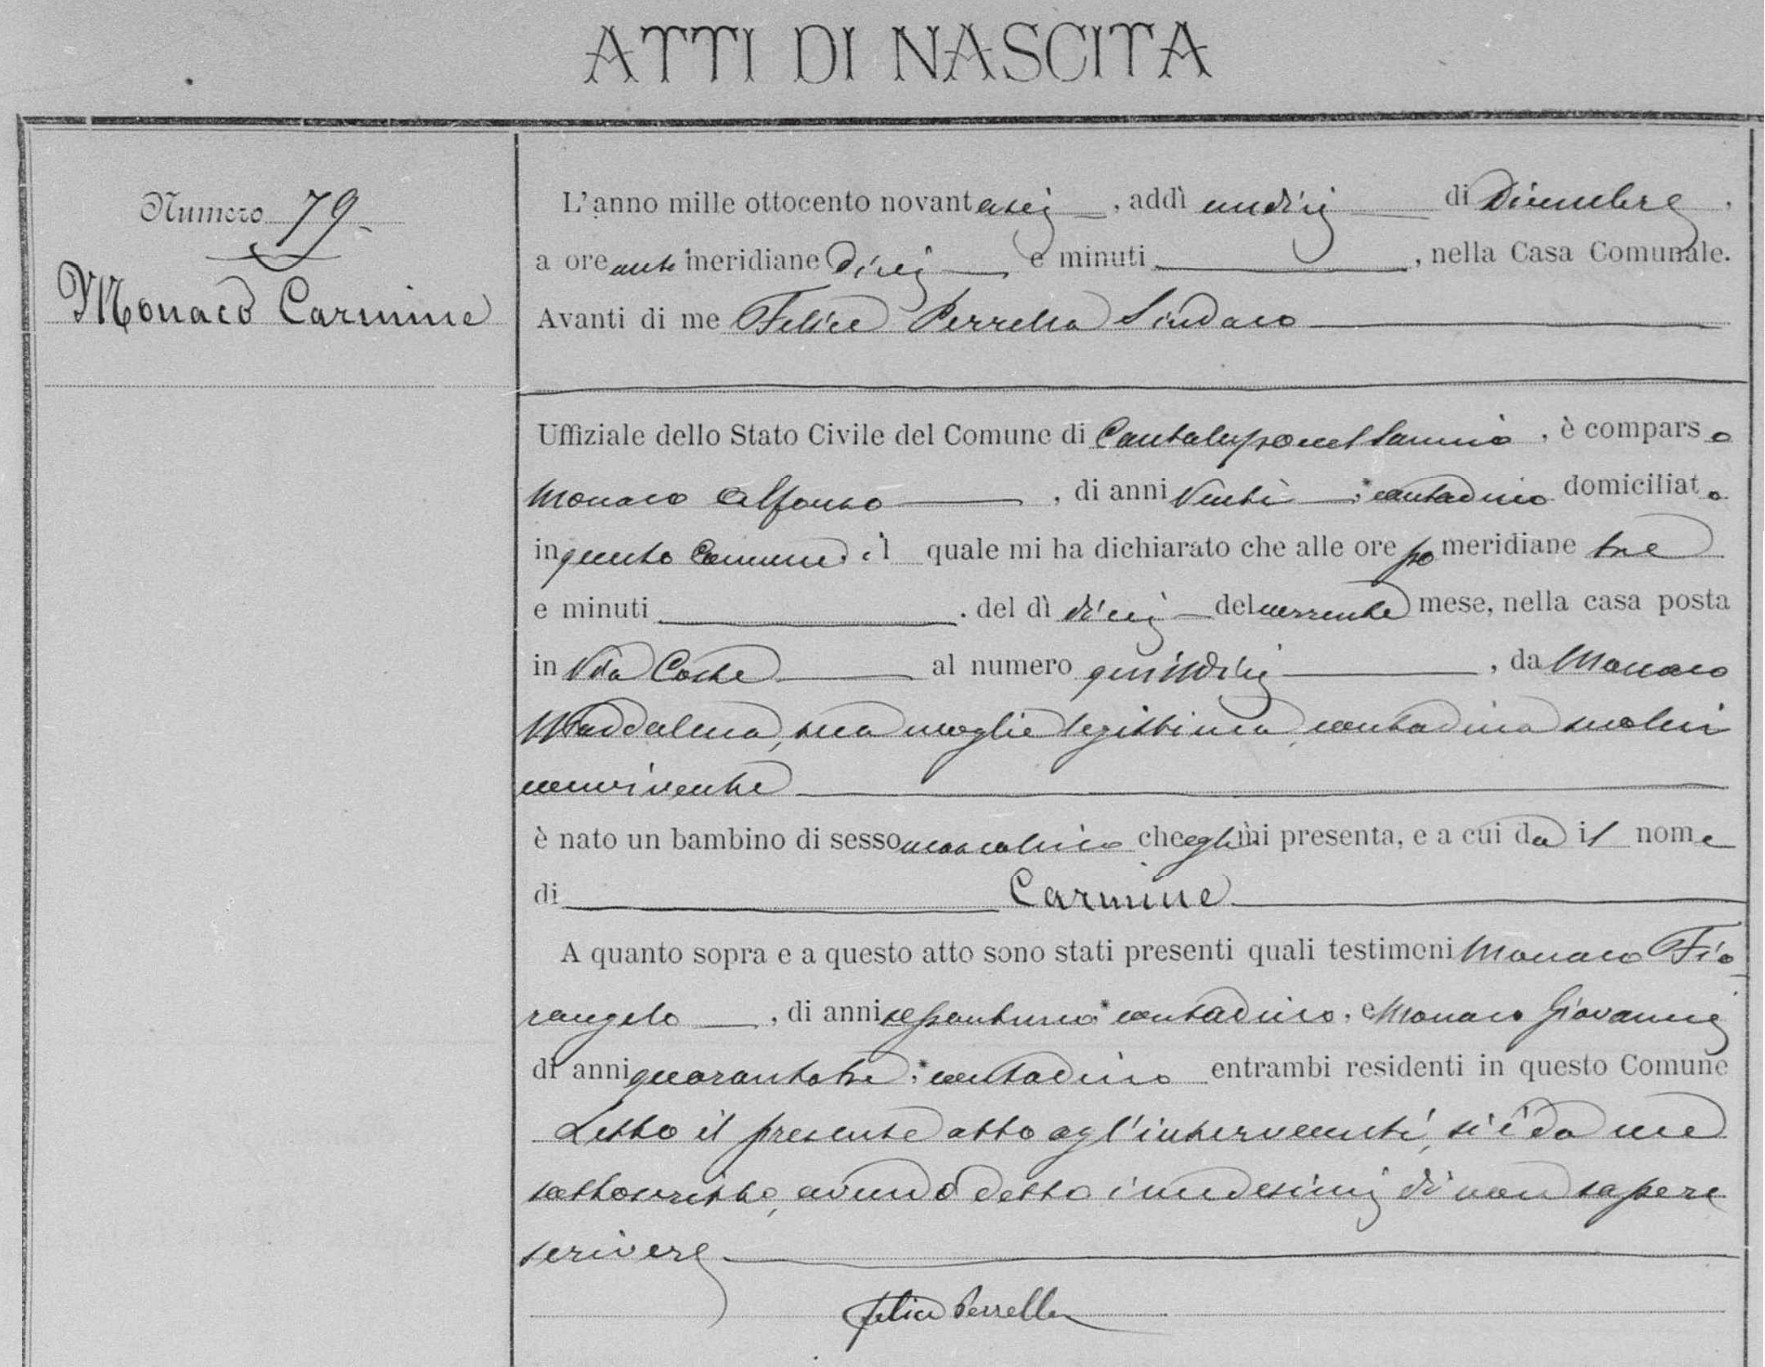 ATTI DI NASCITA
Numero 79.
Monaco Carmine
L'anno mille ottocento novantasei, addì undici di Dicembre,
a ore antimeridiane dieci e minuti, nella Casa Comunale.
Avanti di me Felice Perrella Sindaco
Uffiziale dello Stato Civile del Comune di Cantalupo nel Sannio, è comparso
Monaco Alfonso, di anni venti, contadino domiciliato
in questo Comune, il quale mi ha dichiarato che alle ore pomeridiane tre
e minuti. del dì dieci del corrente mese, nella casa posta
in Via Coste al numero quindici, da Monaco
Maddalena, sua moglie legittima, contadina seco lui
convivente
è nato un bambino di sesso mascolino che egli mi presenta, e a cui da il nome
di Carmine
A quanto sopra e a questo atto sono stati presenti quali testimoni Monaco Fio
rangelo, di anni contadino, e Monaco Giovanni
di anni quarantatre, contadino entrambi residenti in questo Comune
Letto il presente atto agl'intervenuti, si è da me
sottoscritto, avendo detto i medesimi di non sapere
scrivere
Felice Perrella